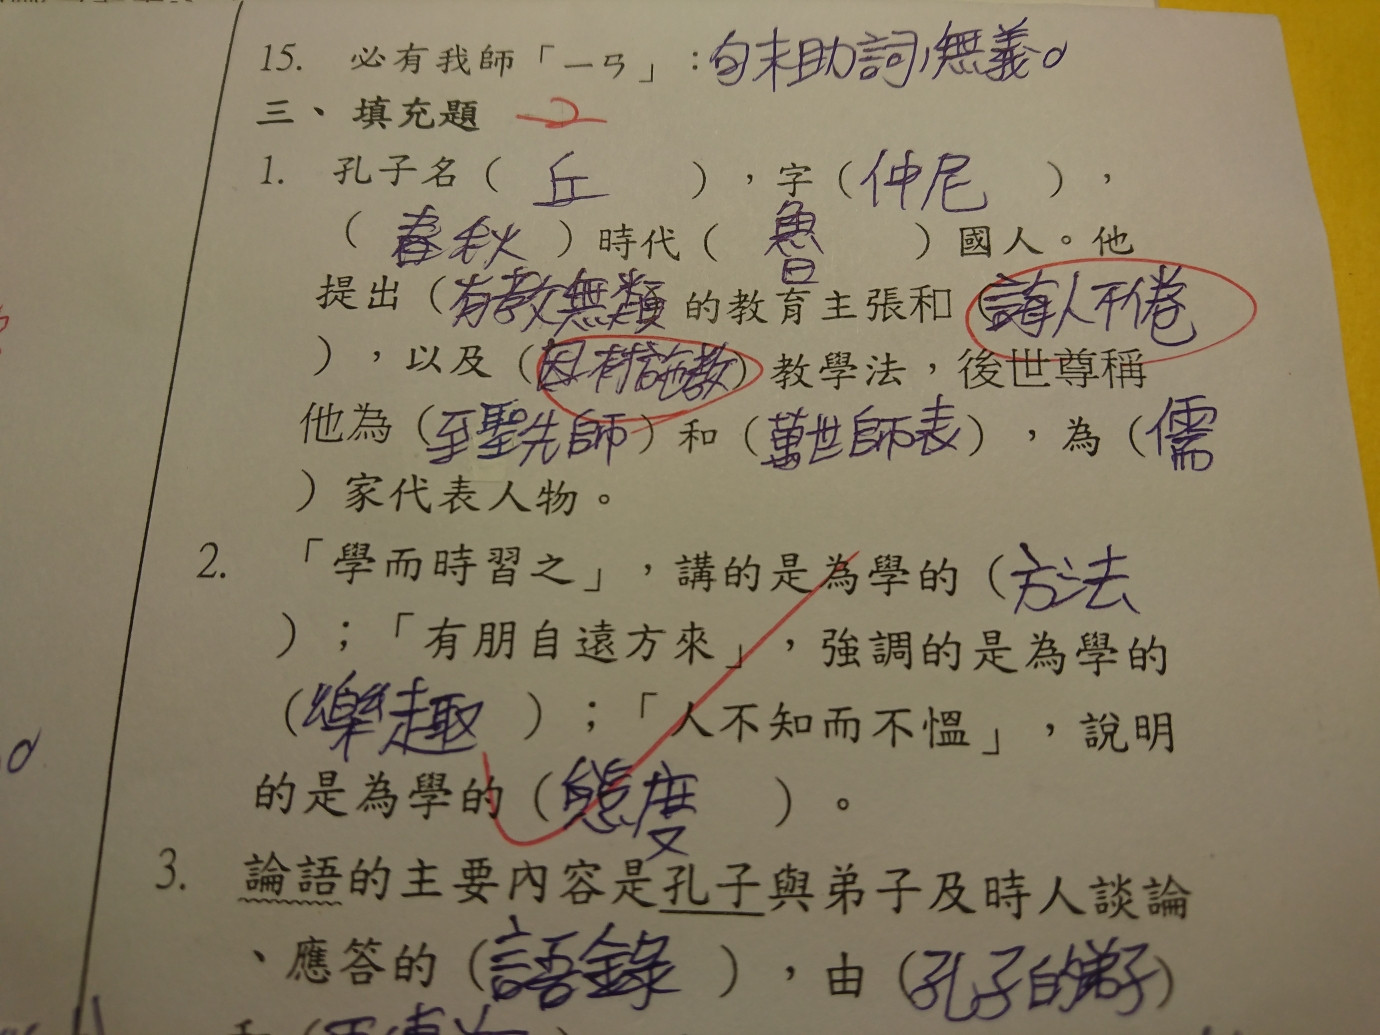 15. 必有我師「ㄧㄢ」:句末助詞,無義。
三、填充題 -2
1. 孔子名( 丘 ),字(仲尼 ),
( 春秋 )時代( 魯 )國人。他
提出(有教無類 的教育主張和(誨人不倦
),以及(因材施教)教學法,後世尊稱
他為(至聖先師)和(萬世師表),為(儒
)家代表人物。
2. 「學而時習之」,講的是為學的(方法
);「有朋自遠方來」,強調的是為學的
(樂趣 );「人不知而不慍」,說明
的是為學的(態度 )。
3. 論語的主要內容是孔子與弟子及時人談論
、應答的(語錄 ),由(孔子的弟子)